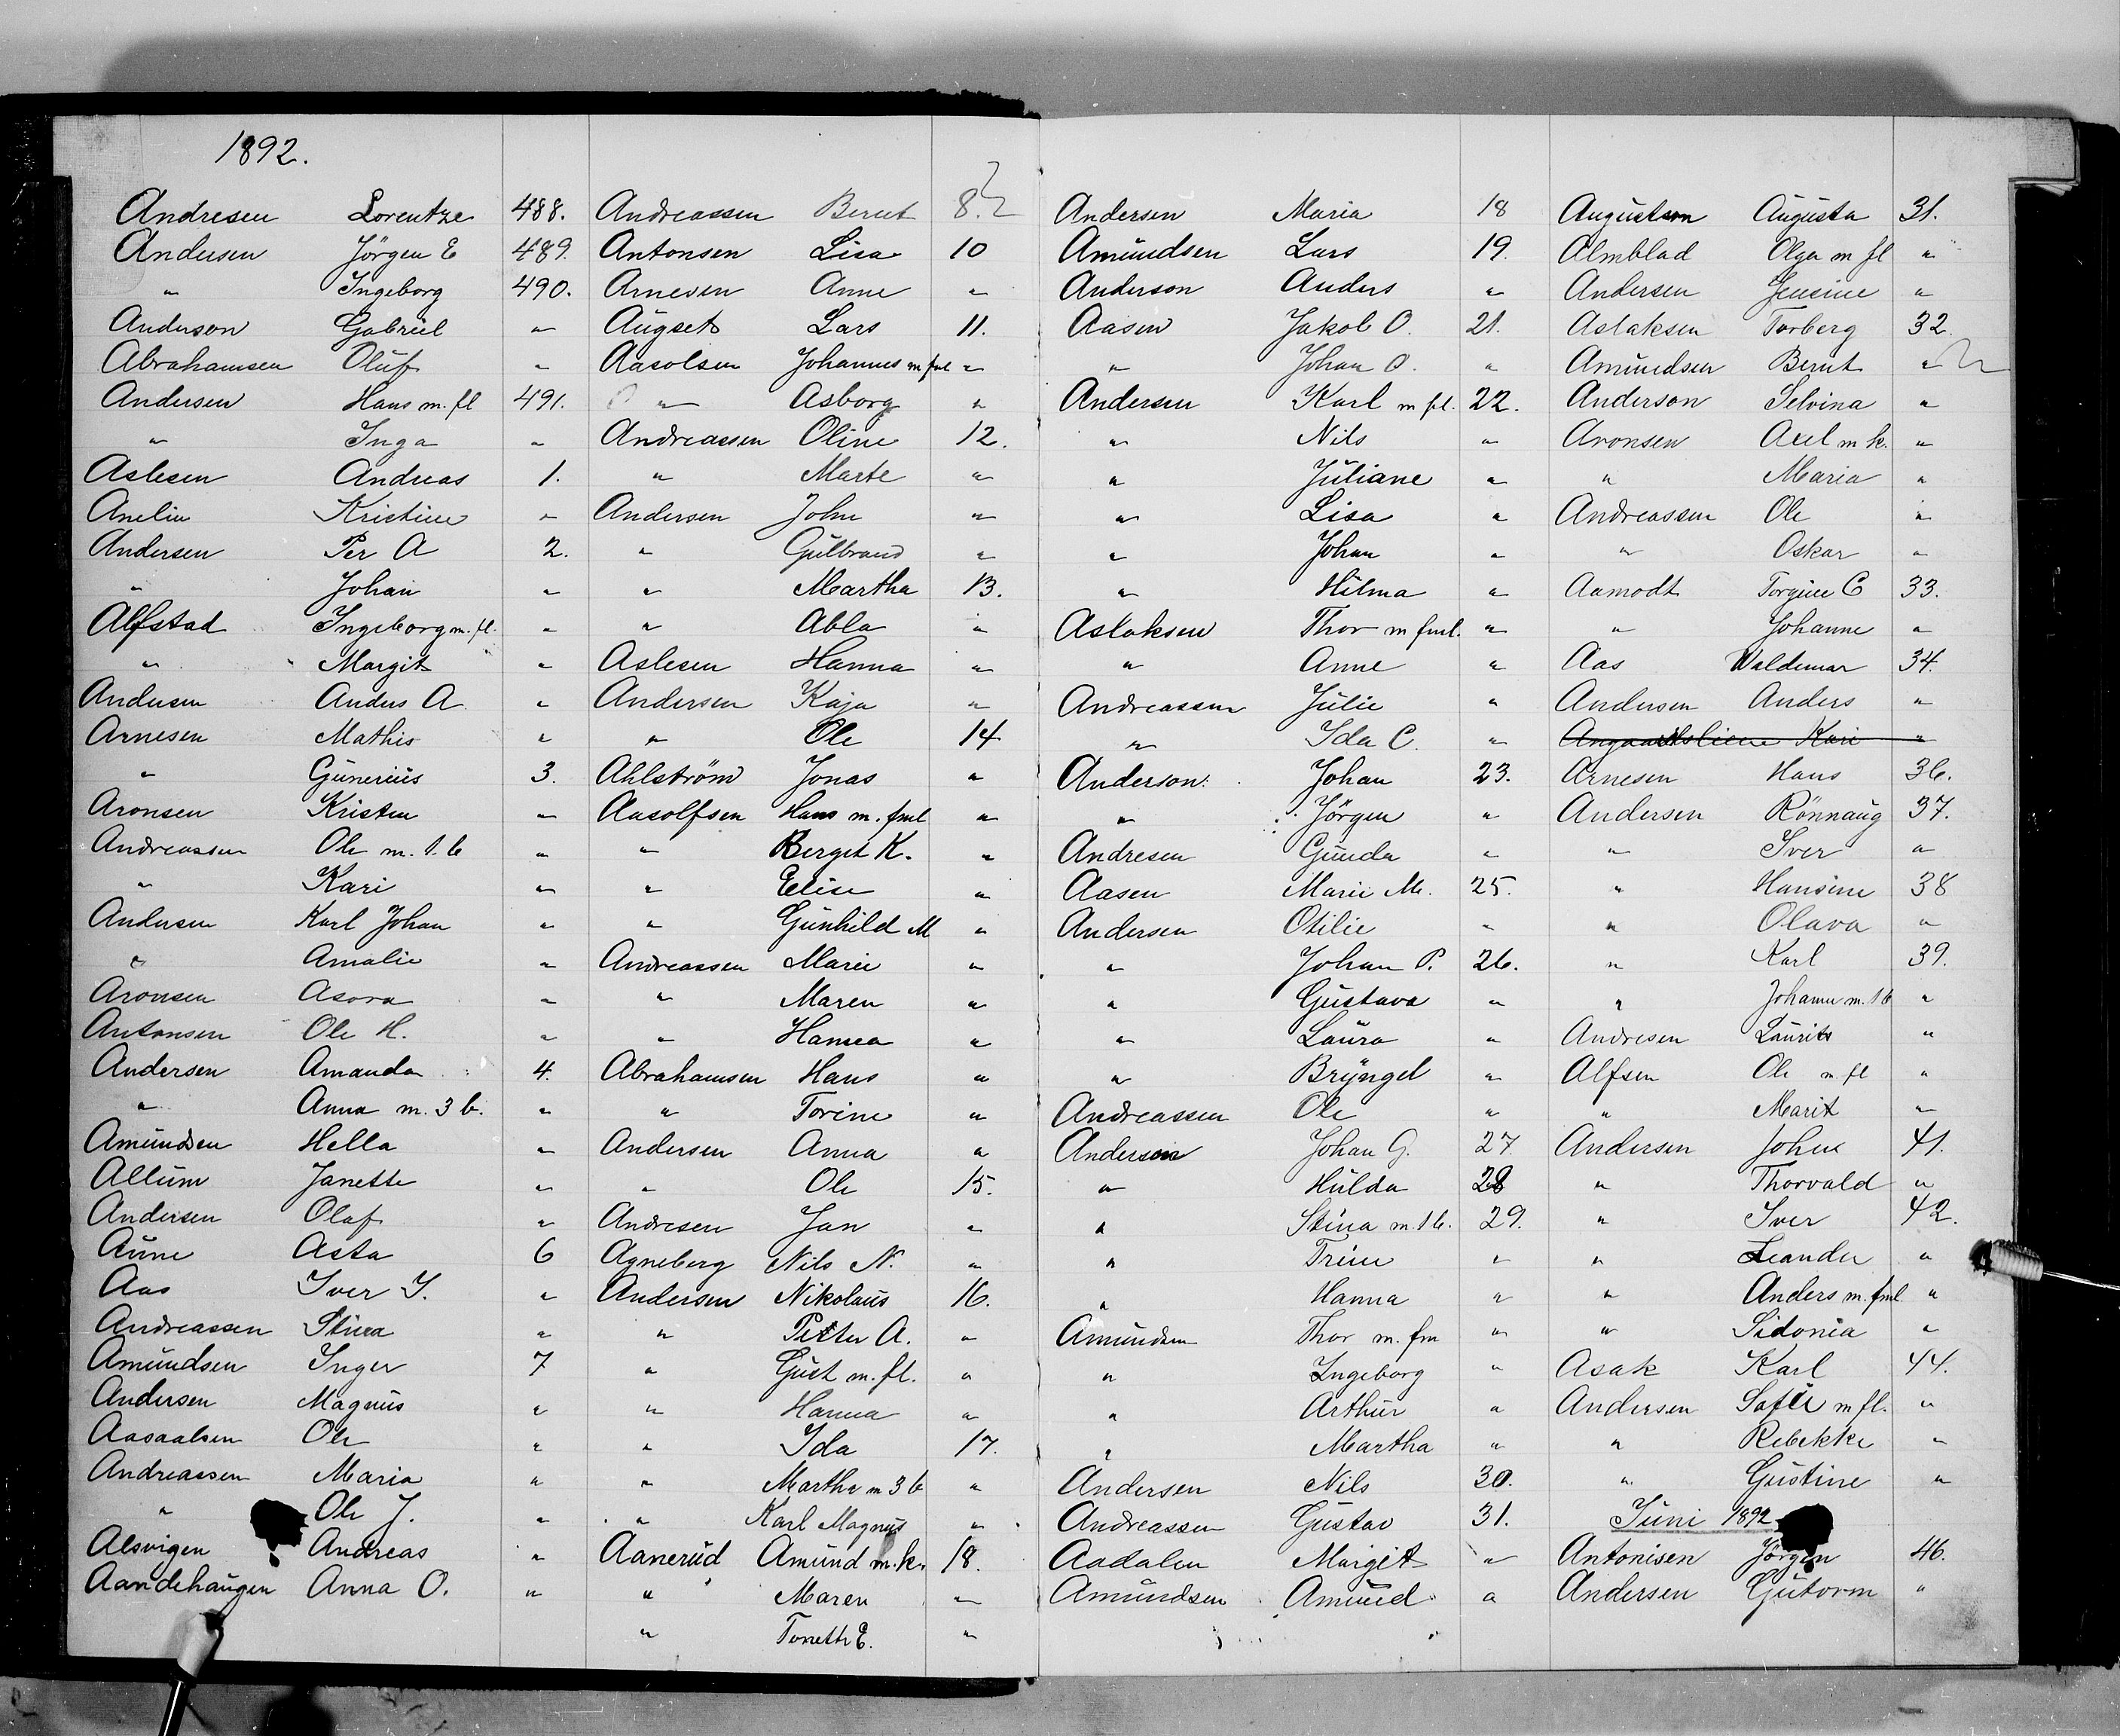 1892.
Andresen Lorentze 488.
Andersen Jörgen E 489.
" Ingeborg 490.
Anderson Gabriel "
Abrahamsen Oluf "
Andersen Hans m. fl 491.
" Inga "
Aslesen Andreas 1.
Anelin Kristine "
Andersen Per A 2.
" Johan "
Alfstad Ingeborg m. fl. "
" Margit "
Andersen Anders A "
Arnesen Mathis "
" Gunerius 3.
Aronsen Kristen "
Andreassen Ole m. 1. b "
" Kari "
Andersen Karl Johan "
" Amalie "
Aronsen Asora "
Antonsen Ole H. "
Andersen Amanda 4.
" Anna m. 3 b. "
Amundsen Hella "
Allum Janette "
Andersen Olaf "
Aune Asta 6
Aas Iver I. "
Andreassen Stina "
Amundsen Inger 7
Andersen Magnus "
Aasaalsen Ole "
Andreassen Maria "
" Ole J. "
Alsvigen Andreas "
Aandehaugen Anna O. "
Andreassen Bernt 8.
Antonsen Lisa 10
Arnesen Anne "
Augset Lars 11.
Aasolsen Johannes m fml "
" Asborg "
Andreassen Oline 12.
" Marte "
Andersen John "
" Gulbrand "
" Martha 13.
" Abla "
Aslesen Hanna "
Andersen Kaja "
" Ole 14
Ahlström Jonas "
Aasolfsen Hans m. fml "
" Berget K. "
" Elise "
" Gunhild M "
Andreassen Marie "
" Maren "
" Hansea "
Abrahamsen Hans "
" Torine "
Andersen Anna "
" Ole 15.
Andresen Jan "
Agneberg Nils N. "
Andersen Nikolaus 16.
" Petter A. "
" Gust m. fl. "
" Hanna "
" Ida 17.
" Martha m 3 b "
" Karl Magnus "
Aanerud Amund m. k. 18.
" Maren "
" Tonette E. "
Andersen Maria 18
Amundsen Lars 19.
Anderson Anders "
Aasen Jakob O. 21.
" Johan O. "
Andersen Karl m fl. 22.
" Nils "
" Juliane "
" Lisa "
" Johan "
" Hilma "
Aslaksen Thor m fml. "
" Anne "
Andreassen Julie "
" Ida C. "
Anderson Johan 23.
" Jörgen "
Andresen Gunda "
Aasen Marie M. 25.
Andersen Otilie "
" Johan P. 26.
" Gustava "
" Laura "
" Bryngel "
Andreassen Ole "
Anderson Johan G. 27
" Hulda 28
" Stina m. 1 b. 29.
" Trine "
" Hanna "
Amundsen Thor m. fm "
" Ingeborg "
" Arthur "
" Martha "
Andersen Nils 30.
Andreassen Gustav 31.
Aadalen Margit "
Amundsen Amund "
Augustson Augusta 31.
Almblad Olga m fl "
Andersen Jensine "
Aslaksen Torberg 32.
Amundsen Bernt "
Anderson Selvina "
Aronsen Axel m k. "
" Maria "
Andreassen Ole "
" Oskar "
Aamodt Torgine C 33.
" Johanne "
Aas Waldemar 34.
Andersen Anders "
Kari "
Arnesen Hans 36.
Andersen Rönnaug 37.
" Iver "
" Hansine 38
" Olava "
" Karl 39.
" Johanne m. 1 b "
Andresen Laurits "
Alfsen Ole m. fl "
" Marit "
Andersen John 41.
" Thorvald "
" Iver 42.
" Leander "
" Anders m. fml "
" Sidonia "
Asak Karl 44.
Andersen Safie m fl. "
" Rebekke "
" Gustine "
Juni 1892
Antonisen Jörgen 46.
Andersen Gutorm "